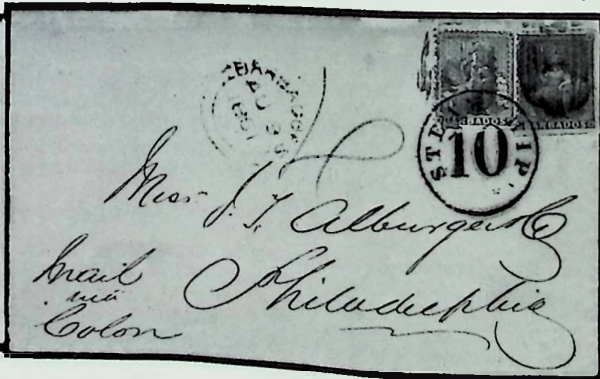 BARBADOS
BARBADOS
BARBADOS
AU
STEAMSHIP
10
J. T. Alburger & Co
Philadelphia
mail
via
Colon